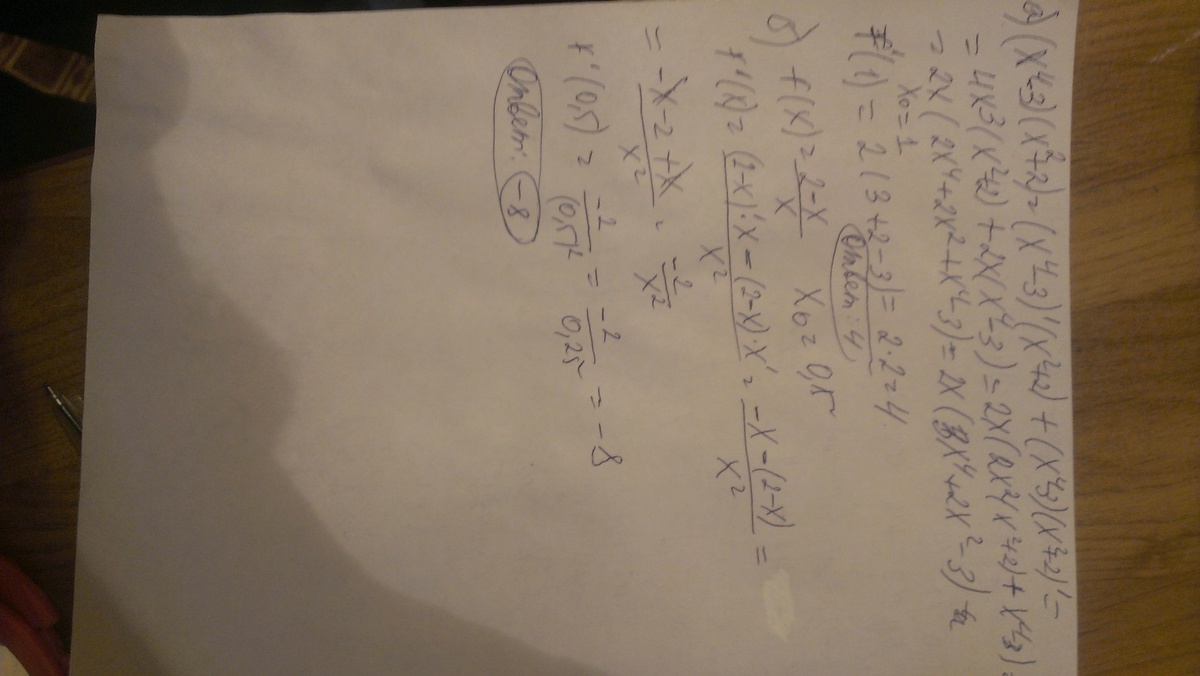 а) (x⁴-3)(x²+2)=(x⁴-3)'(x²+2)+(x⁴-3)(x²+2)'=
=4x³(x²+2)+2x(x⁴-3)=2x(2x²(x²+2)+x⁴-3)=
=2x(2x⁴+2x²+x⁴-3)=2x(3x⁴+2x²-3)
x₀=1
f'(1)=2(3+2-3)=2·2=4
Ответ: 4
б) f(x)=(2-x)/x x₀=0,5
f'(x)=((2-x)'·x-(2-x)·x')/x²=(-x-(2-x))/x²=
=(-x-2+x)/x²=-2/x²
f'(0,5)=-2/(0,5)²=-2/0,25=-8
Ответ: -8